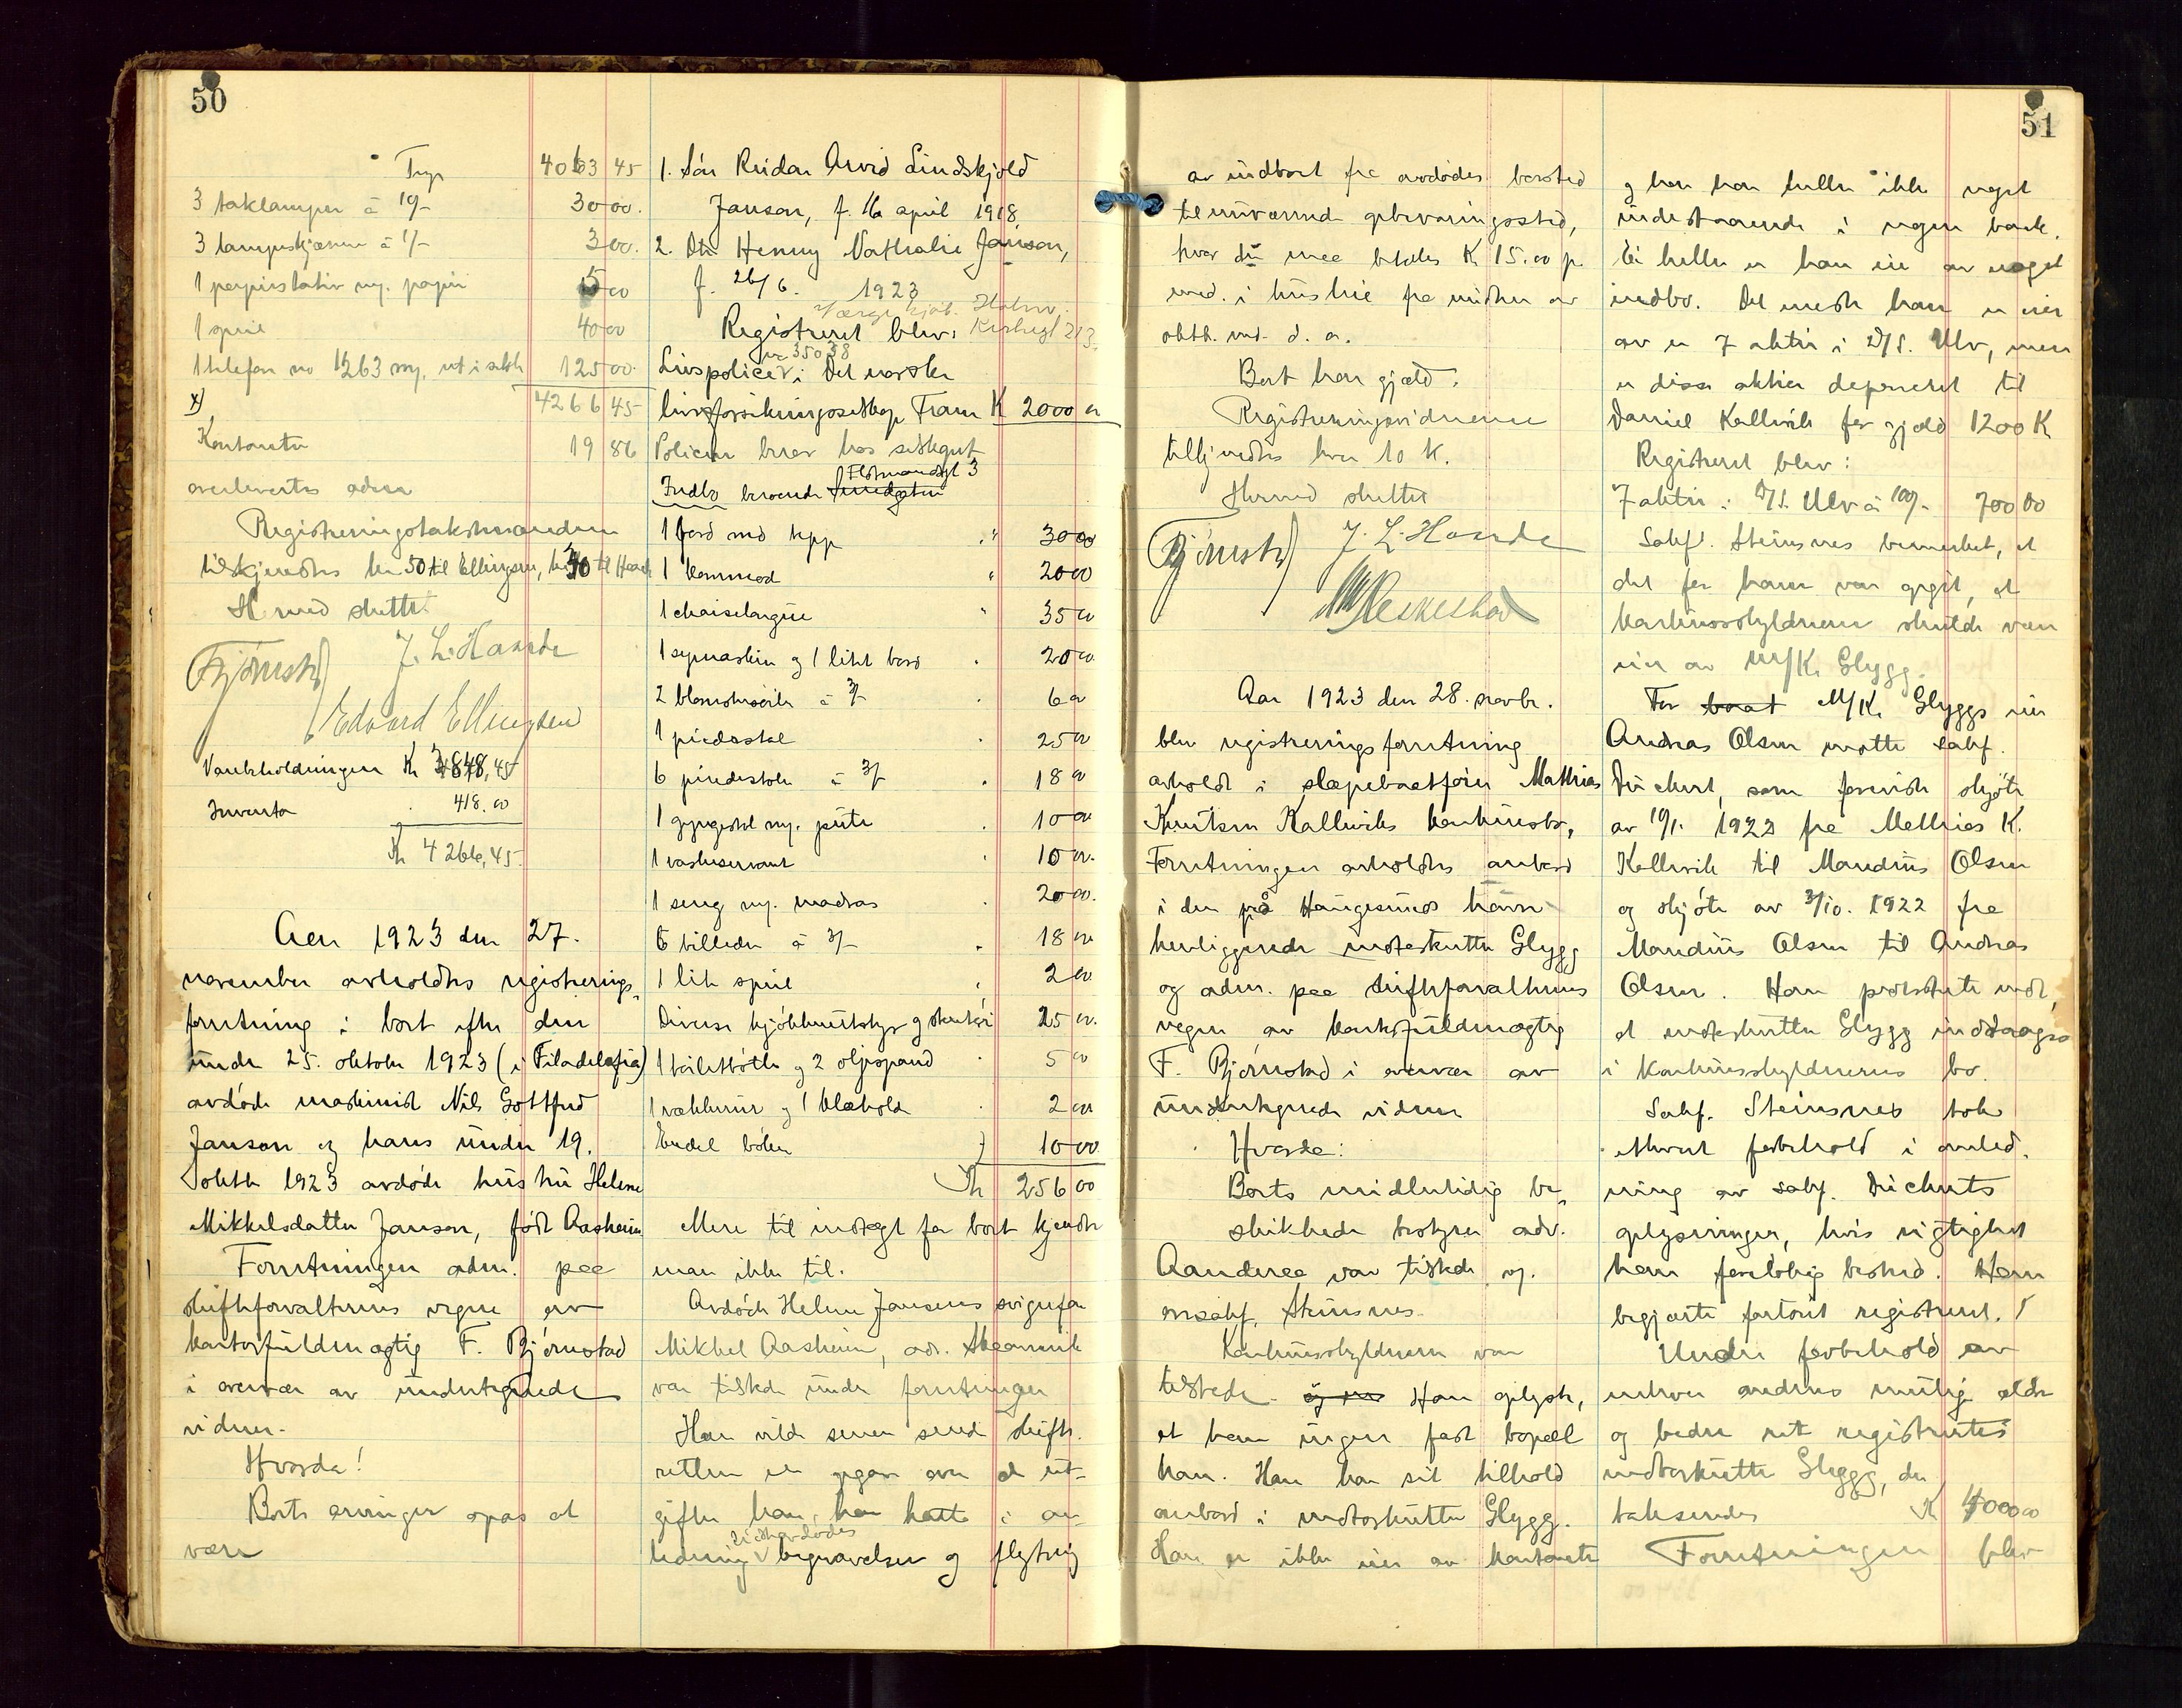 50
Trp. 4063 45
3 taklamper á 10/- 30 00.
3 lampeskjærme á 1/- 3 00.
1 papirstativ m. papir 5 00
1 speil 40 00
1 telefon no 1263 125 00.
x) 4266 45
Kontanter 19 86
overlevertes adm.
Registreringstakstmændene
tilkjendtes kr 50 til Ellingsen,
Hermed sluttet.
Bjørnstad J. L. Haarde
Edvard Ellingsen
Varebeholdningen Kr 3848,45
Inventar 418.00
Kr 4266,45.
Aar 1923 den 27.
november avholdtes registrerings-
forretning i boet efter den
under 25. oktober 1923 (i Filadelafia)
avdøde maskinist Nils Gottfred
Janson og hans under 19.
oktbr 1923 avdøde hustru Helene
Mikkelsdatter Janson, født Aasheim
Forretningen adm. paa
skifteforvalterens vegne av
kontorfuldmægtig F. Bjørnstad
i overvær av undertegnede
vidner.
Hvorda!
Boets arvinger opgas at
være
1. Søn Reidar Arvid Lindskjold
Janson, f. 16 april 1918
2. Dtr. Henny Nathalie Janson,
f. 26/6. 1923
Registreret blev:
nr 35038
Livspolice i Det norske
livsforsikringsselskap Fram K 2000 00
Policen beror hos selskapet
Indbo beroende Flotmandsgt 3
1 bord med tepp " 30 00
1 kommod " 20 00
1 chaiselongue " 35 00
1 symaskin og 1 litet bord " 20 00.
2 blomstersøiler á 3/- " 6 00
1 piedestal " 25 00
6 pindestoler á 3/- " 18 00
1 gyngestol m. pute " 10 00
1 vaskeservant " 10 00.
1 seng m. madras " 20 00.
6 billeder á 3/- " 18 00
1 lite speil " 2 00
Diverse kjøkkenutstyr og stentøi 25 00.
1 toiletbøtte og 2 oljespand " 5 00
1 vækkerur og 1 2 00
Endel bøker " 10 00
Kr 256 00
Mere til indtægt for boet kjendte
man ikke til.
Avdøde Helene Jansons svigerfar
Mikkel Aasheim, adr. Skaanevik
var tilstede under forretningen
Han vilde senere sende skifte-
retten en opgave over de ut-
gifter han har hatt i an-
ledning begravelsen og flytning
51
av indboet fra avdødes bosted
til nuværende opbevaringssted,
hvor der maa betales K 15.00 p.
md. i husleie fra midten av
oktb. md. d. a.
Boet har gjæld.
Registreringsvidnerne
tilkjendtes hver 10 K.
Hermed sluttet
Bjørnstad J. L. Haarde
Aar 1923 den 28. novbr.
blev registreringsforretning
avholdt i slæpebaatfører Mathias
Knutsen Kallviks konkursbo,
Forretningen avholdtes ombord
i den på Haugesunds havn
henliggende motorkutter Glygg
og adm. paa skifteforvalterens
vegne av kontorfuldmægtig
F. Bjørnstad i overvær av
undertegnede vidner
Hvorda:
Boets midlertidig be-
skikkede bestyrer adv.
Aanderaa var tilstede og
orssakf. Steinsnes.
Konkursskyldneren var
tilstede. Han oplyste,
at han ingen fast bopæl
har. Han har sit tilhold
ombord i motorkutter Glygg.
Han er ikke eier av kontanter
og han har heller ikke noget
indestaaende i nogen bank.
Ei heller er han eier av noget
indbo. Det eneste han er eier
av er 7 aktier i D/S. Ulv, men
er disse aktier deponeret til
Daniel Kallvik for gjæld 1200 K
Registreret blev:
7 aktier i D/S. Ulv á 100/- 700 00
Sakf. Steinsnes bemerket, at
det for ham var opgit, at
konkursskyldneren skulde være
eier av M/K. Glygg.
For M/K. Glyggs eier
Andreas Olsen møtte sakf.
Duckert, som foreviste skjøte
av 10/1. 1922 fra Mathias K.
Kallvik til Mandius Olsen
og skjøte av 3/10. 1922 fra
Mandius Olsen til Andreas
Olsen. Han protesterte mot,
at motorkutter Glygg inddrages
i konkursskyldnerens bo.
Sakf. Steinsnes tok
ethvert forbehold i anled-
ning av sakf. Duckerts
oplysninger, hvis rigtighet
han foreløbig bestred. Han
begjærte fartøiet registreret.
Under forbehold av
enhver andens mulig ældre
og bedre ret registrertes
motorkutter Glygg, der
takseredes K 4000 00
Forretningen blev